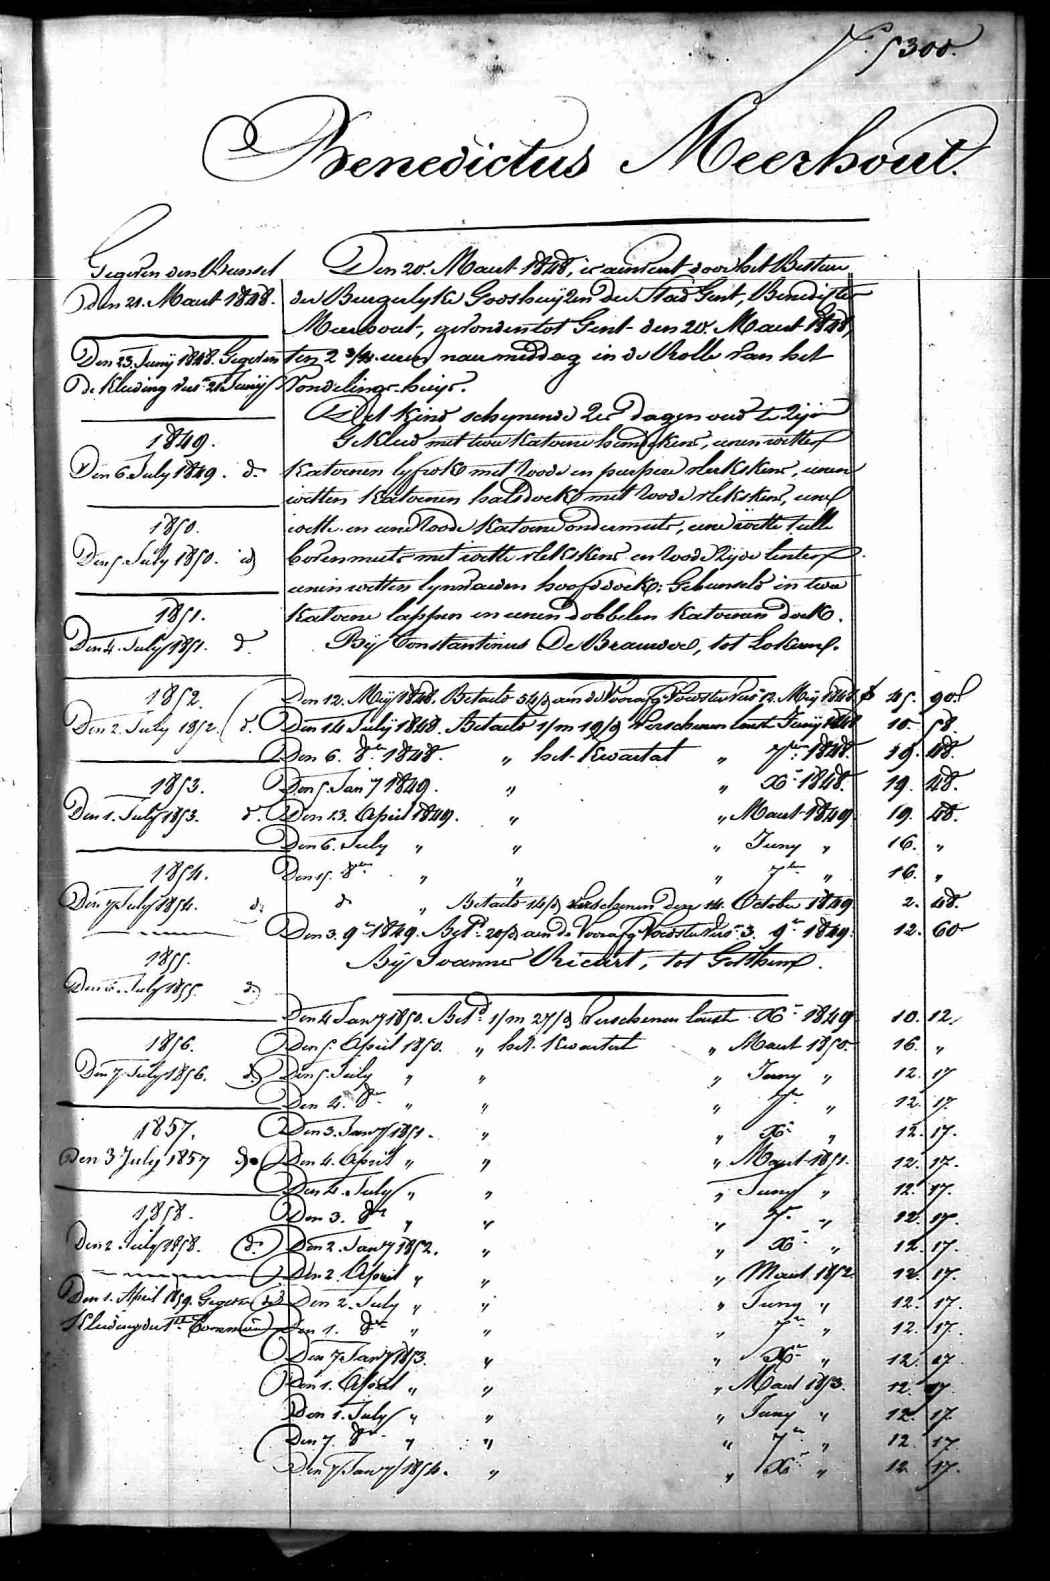 N.º 5300.
Benedictus Meerhout.
Gegeven den Bunsel
Den 21. Maart 1848.
Den 23. Junij 1848. Gegeven
de Kleeding
1849.
Den 6 July 1849. dº
1850.
Den 5 July 1850. id
1851.
Den 4. July 1851. dº
1852.
Den 2. July 1852. dº
1853.
Den 1. July 1853. dº
1854.
Den 7 July 1854. dº
1855.
July 1855. dº
1856.
Den 7 July 1856. dº
1857.
Den 3 July 1857 dº
1858.
Den 2 July 1858. dº
Den 1. April 1859. Gegeven de
Kleeding der 1ste Communie
Den 20. Maart 1848, is aenveert door het Bestuer
der Burgerlyke Godshuyzen der Stad Gent, Benedictus
Meerhout, gevonden tot Gent den 20. Maart 1848,
ten 2 3/4 uren naermiddag in de Rolle van het
Vondelings-huys.
Het Kind schynende 2 dagen oud te zyn
Gekleed met twee Katoene hemdekens, eenen witten
Katoenen lyfrok met roode en purpere vlekskens, eenen
witten Katoenen halsdoek met roode vlekskens, eene
witte en eene roode Katoene ondermuts, eene witte tulle
bovenmuts met witte vlekskens en roode zyde linten,
eenen witten lynwaeden hoofddoek; Gebunseld in twee
Katoene lappen en eenen dobbelen Katoenen doek.
Bij Constantinus De Brauwer, tot Lokeren.
Den 12. Meij 1848. Betaeld 54/d aen de Voorafg. Voedster 12. Meij 1848. f 45. 90.
Den 14 Julij 1848. Betaeld 1/m 19/d Verschenen laest Junij 1848 10. 58.
Den 6. 8ber 1848. " het Kwartaal " 7ber 1848. 19. 48.
Den 5. Janry 1849. " " Xr 1848. 19. 48.
Den 13. April 1849. " " Maart 1849. 19. 48.
Den 6. July " " " Juny " 16. "
Den 15. 8ber " " " 7ber " 16. "
dº " Betaeld 14/d Verschenen den 14. October 1849 2. 48.
Den 3. 9r 1849. Betd 20/d aen de Voorafg. Voedster 3. 9r 1849. 12. 60
Bij Joannes Ricart, tot
Den 4 Janry 1850. Betd 1/m 27/d Verschenen laest Xr 1849 10. 12.
Den 5. April 1850. " het Kwartaal " Maart 1850. 16. "
Den 5. July " " " Juny " 12. 17
Den 4. 8r " " " 7r " 12. 17.
Den 3. Janry 1851. " " Xr " 12. 17.
Den 4. April " " " Maart 1851. 12. 17.
Den 4. July " " " Juny " 12. 17.
Den 3. 8r " " " 7r " 12. 17.
Den 2. Janry 1852. " " Xr " 12. 17.
Den 2. April " " " Maart 1852 12. 17.
Den 2. July " " " Juny " 12. 17.
Den 1. 8r " " " 7r " 12. 17.
Den 7 Janry 1853. " " Xr " 12. 17
Den 1. April " " " Maart 1853. 12. 17.
Den 1. July " " " Juny " 12. 17.
Den 7. 8r " " " 7r " 12. 17
Den 7 Janry 1854. " " Xr " 12 17.